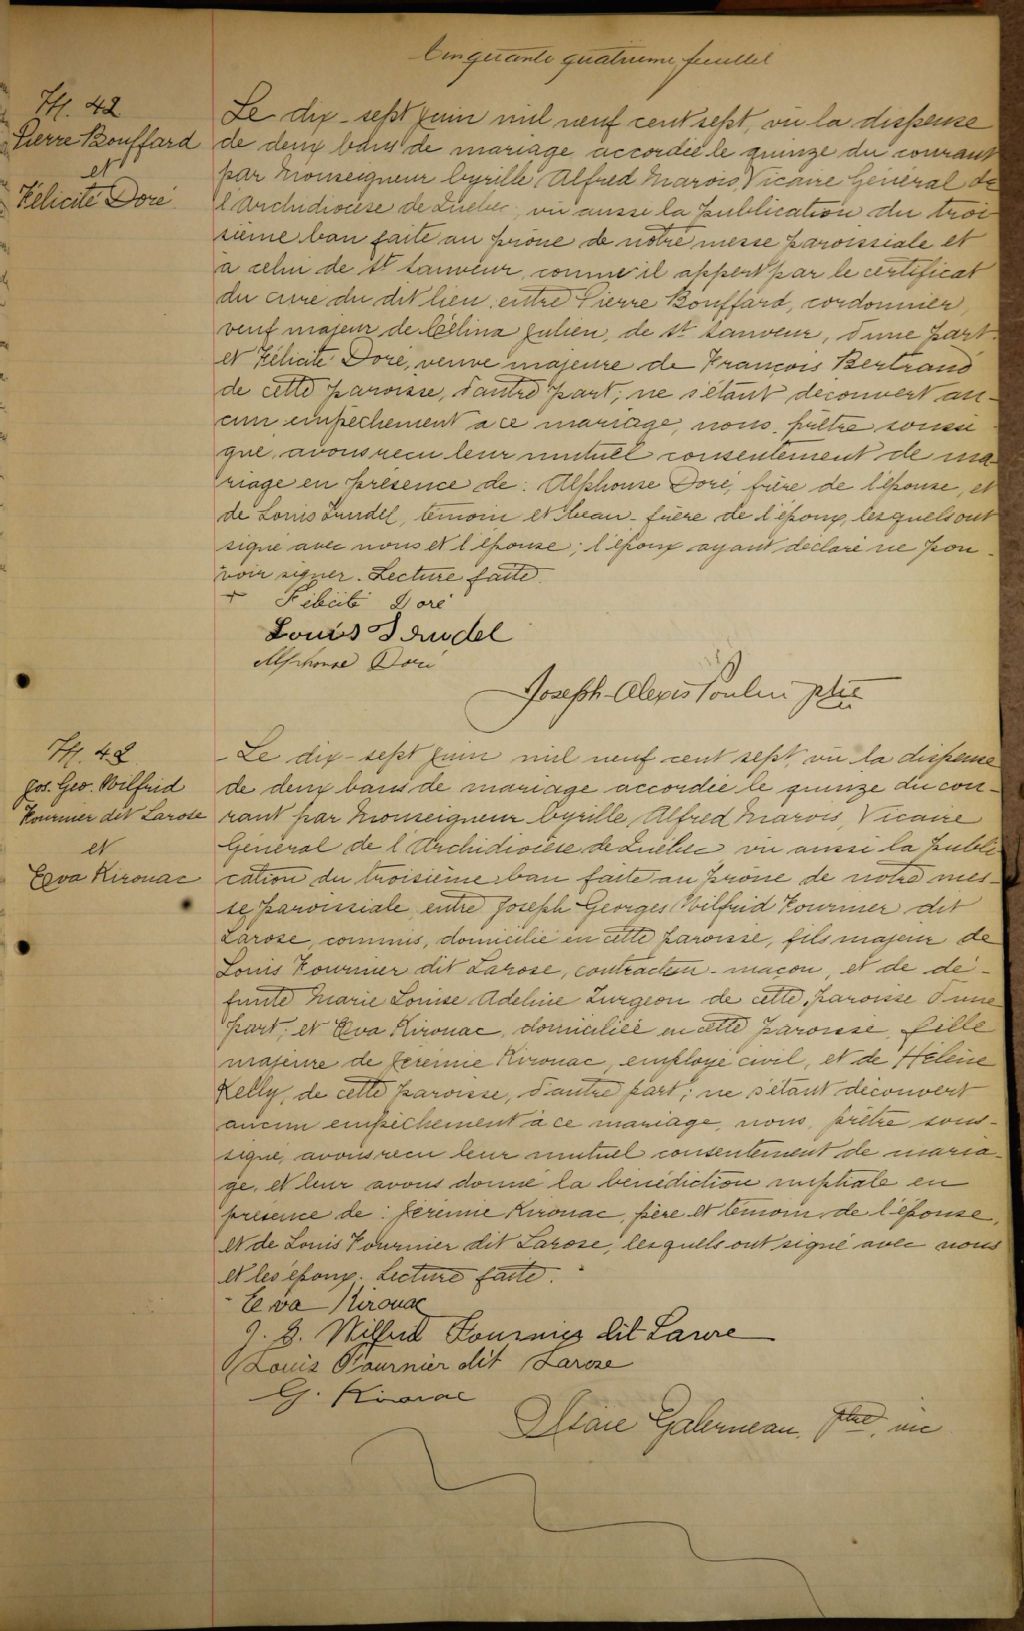 Cinquante quatrieme feuillet
M. 42
Pierre Bouffard
et
Félicité Doré
Le dix-sept Juin mil neuf cent sept, vu la dispense
de deux bans de mariage accordée le quinze du courant
par Monseigneur Cyrille Alfred Marois, Vicaire Général de
l'Archidiocèse de Québec, vu aussi la publication du troi
sième ban faite au prône de notre messe paroissiale et
à celui de St Sauveur, comme il appert par le certificat
du curé du dit lieu, entre Pierre Bouffard, cordonnier,
veuf majeur de Célina Julien, de St Sauveur, d'une part
et Félicité Doré, veuve majeure de François Bertrand
de cette paroisse, d'autre part; ne s'étant découvert au-
cun empêchement à ce mariage, nous, prêtre soussi
gné, avons reçu leur mutuel consentement de ma-
riage en présence de: Alphonse Doré, frère de l'épouse, et
de Louis Trudel, témoin et beau-frère de l'époux, lesquels ont
signé avec nous et l'épouse; l'époux ayant déclaré ne pou-
voir signer. Lecture faite.
+ Félicité Doré
Louis Trudel
Alphonse Doré
Joseph-Alexis Poulin ptre
M. 42
Jos. Geo. Wilfrid
Fournier dit Larose
et
Eva Kirouac
- Le dix-sept Juin mil neuf cent sept, vu la dispense
de deux bans de mariage accordée le quinze du cou-
rant par Monseigneur Cyrille Alfred Marois, Vicaire
Général de l'Archidiocèse de Québec, vu aussi la publi-
cation du troisième ban faite au prône de notre mes-
se paroissiale, entre Joseph Georges Wilfrid Fournier dit
Larose, commis, domicilié en cette paroisse, fils majeur de
Louis Fournier dit Larose, contracteur-maçon, et de dé-
funte Marie Louise Adeline Turgeon de cette paroisse d'une
part; et Eva Kirouac, domiciliée en cette paroisse, fille
majeure de Jérémie Kirouac, employé civil, et de Hélène
Kelly, de cette paroisse, d'autre part; ne s'étant découvert
aucun empêchement à ce mariage, nous, prêtre sous-
signé, avons reçu leur mutuel consentement de maria-
ge, et leur avons donné la bénédiction nuptiale en
présence de: Jérémie Kirouac, père et témoin de l'épouse,
et de Louis Fournier dit Larose, lesquels ont signé avec nous
et les époux. Lecture faite.
Eva Kirouac
J. G. Wilfrid Fournier dit Larose
Louis Fournier dit Larose
G. Kirouac
Isaïe Galerneau, ptre, vic